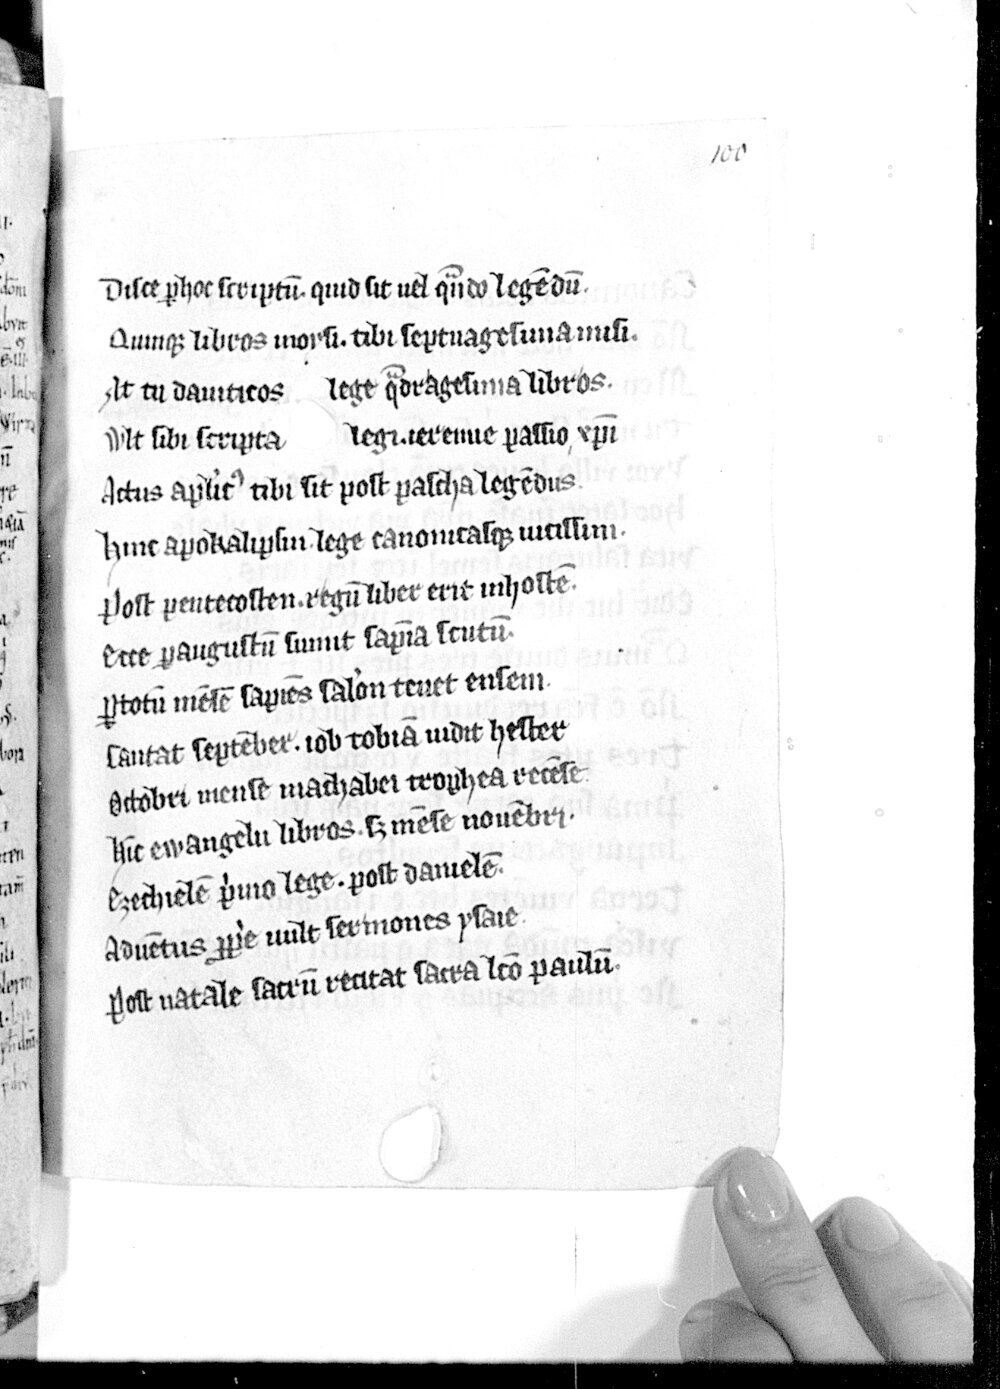 100
Disce ꝑ hoc scriptū. quid sit uel qn̄do legēdū.
Quinqꝫ libros moysi. tibi septuagesima misi.
At tu dauiticos lege qᷓdragesima libros.
Vlt sibi scripta legi. ieremie passio xp̄i
Actus apl'icꝰ tibi sit post pascha legēdus.
Hinc apokalipsin lege canonicasqꝫ uicissim.
Post pentecosten. regū liber erit in hostē.
Ecce ꝑ augustū sumit sapīa scutū.
ꝑ totū mēsē sapiēs salōn tenet ensem.
Cantat septēber. iob tobiā iudit hester
Octobri mense machabei trophea recēse.
Hīc ewangelii libros. sꝫ mēse nouēbri.
Ezechielē p'mo lege. post danielē.
Aduētus ꝓp'e uult sermones ysaie.
Post natale sacrū recitat sacra lcō paulū.